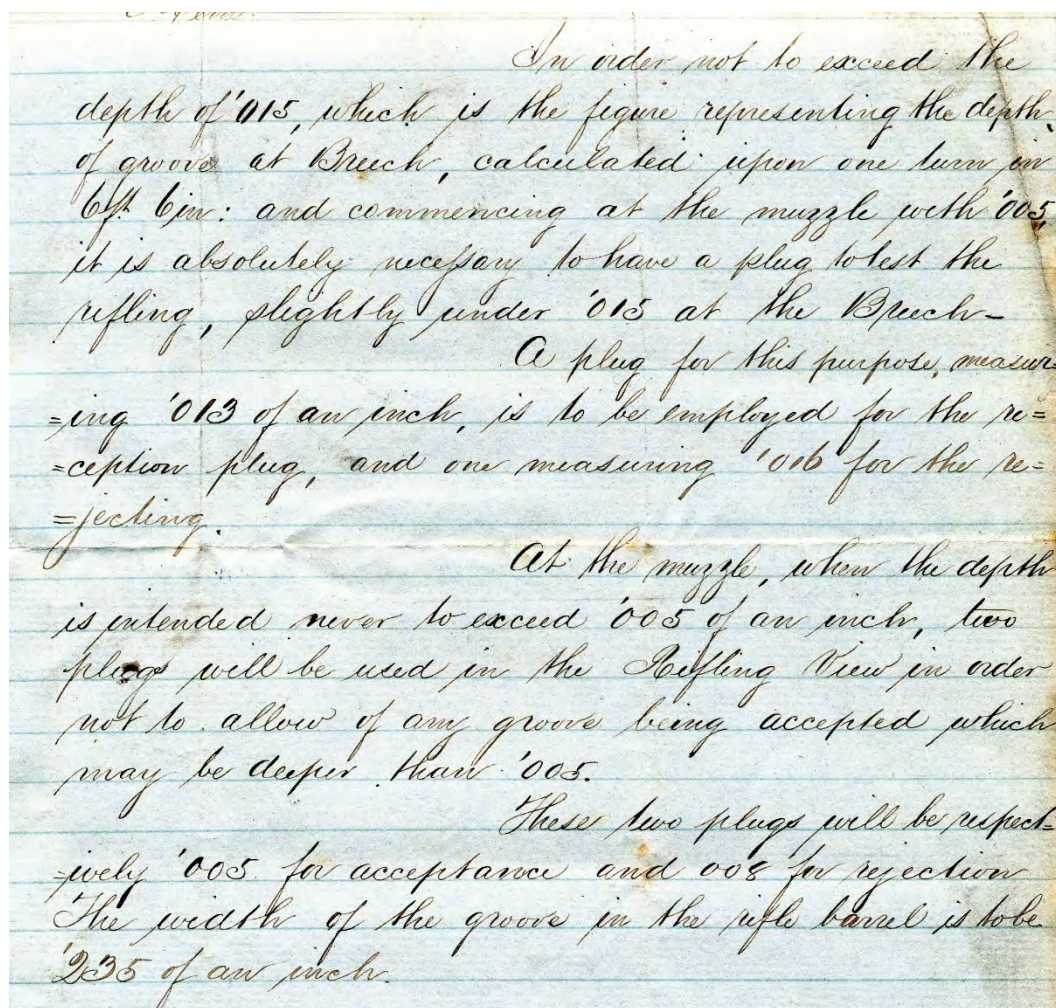 In order not to exceed the
depth of '015, which is the figure representing the depth
of groove at Breech, calculated upon one turn in
6ft. 6in: and commencing at the muzzle with '005,
it is absolutely necessary to have a plug to test the
rifling, slightly under '015 at the Breech –
A plug for this purpose, measur=
=ing '013 of an inch, is to be employed for the re=
=ception plug, and one measuring '016 for the re=
=jecting.
At the muzzle, when the depth
is intended never to exceed '005 of an inch, two
plugs will be used in the Rifling View in order
not to allow of any groove being accepted which
may be deeper than '005.
These two plugs will be respect=
=ively '005 for acceptance and 008 for rejection
The width of the groove in the rifle barrel is to be
'235 of an inch.